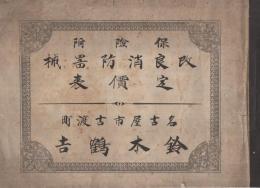 保險附
改良消防器械
定價表
名古屋市古渡町
鈴木鶴吉